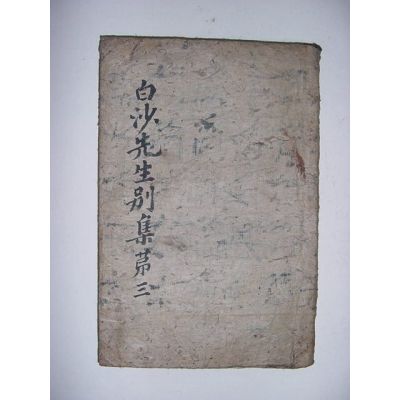 白沙先生別集苐三